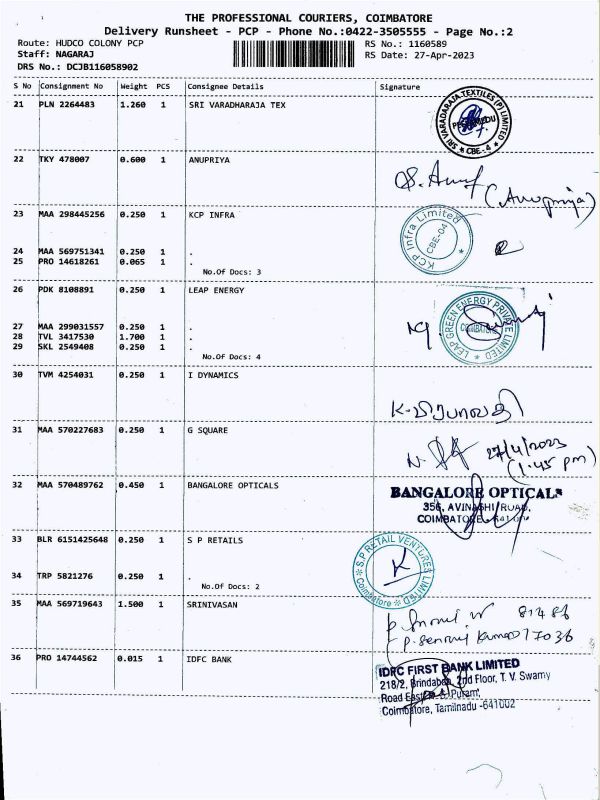 THE PROFESSIONAL COURIERS, COIMBATORE
Delivery Runsheet - PCP - Phone No.:0422-3505555 - Page No.:2
Route: HUDCO COLONY PCP RS No.: 1160589
Staff: NAGARAJ RS Date: 27-Apr-2023
DRS No.: DCJB116058902
S No Consignment No Weight PCS Consignee Details Signature
21 PLN 2264483 1.260 1 SRI VARADHARAJA TEX
SRI VARADARAJA TEXTILES (P) LIMITED * CBE-4 *
22 TKY 478007 0.600 1 ANUPRIYA
(Anupriya)
23 MAA 298445256 0.250 1 KCP INFRA
KCP Infra Limited * CBE-04
24 MAA 569751341 0.250 1 .
25 PRO 14618261 0.065 1 .
No.Of Docs: 3
26 PDK 8108891 0.250 1 LEAP ENERGY
LEAP GREEN ENERGY PRIVATE LIMITED * COIMBATORE
27 MAA 299031557 0.250 1 .
28 TVL 3417530 1.700 1 .
29 SKL 2549408 0.250 1 .
No.Of Docs: 4
30 TVM 4254031 0.250 1 I DYNAMICS
31 MAA 570227683 0.250 1 G SQUARE
27/4/2023
(1.45 pm)
32 MAA 570489762 0.450 1 BANGALORE OPTICALS
BANGALORE OPTICALS
356, AVINASHI ROAD,
COIMBATORE
33 BLR 6151425648 0.250 1 S P RETAILS
S.P RETAIL VENTURES LIMITED * Coimbatore *
K
34 TRP 5821276 0.250 1 .
No.Of Docs: 2
35 MAA 569719643 1.500 1 SRINIVASAN
36 PRO 14744562 0.015 1 IDFC BANK
IDFC FIRST BANK LIMITED
218/2, Brindaban, 2nd Floor, T. V. Swamy
Road East, R.S. Puram,
Coimbatore, Tamilnadu -641002